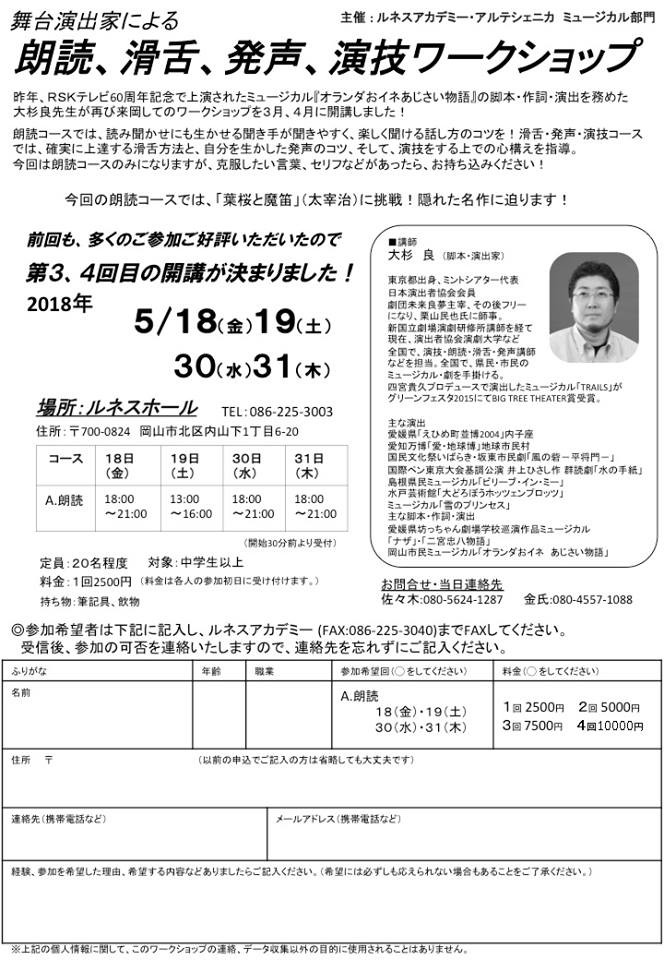 舞台演出家による
主催：ルネスアカデミー・アルテシェニカ ミュージカル部門
朗読、滑舌、発声、演技ワークショップ
昨年、RSKテレビ60周年記念で上演されたミュージカル『オランダおイネあじさい物語』の脚本・作詞・演出を務めた
大杉良先生が再び来岡してのワークショップを３月、４月に開講しました！
朗読コースでは、読み聞かせにも生かせる聞き手が聞きやすく、楽しく聞ける話し方のコツを！滑舌・発声・演技コース
では、確実に上達する滑舌方法と、自分を生かした発声のコツ、そして、演技をする上での心構えを指導。
今回は朗読コースのみになりますが、克服したい言葉、セリフなどがあったら、お持ち込みください！
今回の朗読コースでは、「葉桜と魔笛」（太宰治）に挑戦！隠れた名作に迫ります！
前回も、多くのご参加ご好評いただいたので
第３、４回目の開講が決まりました！
2018年
５/１８（金）１９（土）
３０（水）３１（木）
場所：ルネスホール TEL：086-225-3003
住所：〒700-0824 岡山市北区内山下1丁目6-20
コース 18日（金） 19日（土） 30日（水） 31日（木）
A.朗読 18:00～21:00 13:00～16:00 18:00～21:00 18:00～21:00
（開始30分前より受付）
定員：２０名程度 対象：中学生以上
料金：１回2500円 （料金は各人の参加初日に受け付けます。）
持ち物：筆記具、飲物
■講師
大杉 良（脚本・演出家）
東京都出身、ミントシアター代表
日本演出者協会会員
劇団未来良夢主宰、その後フリー
になり、栗山民也氏に師事。
新国立劇場演劇研修所講師を経て
現在、演出者協会演劇大学など
全国で、演技・朗読・滑舌・発声講師
などを担当。全国で、県民・市民の
ミュージカル・劇を手掛ける。
四宮貴久プロデュースで演出したミュージカル「TRAILS」が
グリーンフェスタ2015にてBIG TREE THEATER賞受賞。
主な演出
愛媛県「えひめ町並博2004」内子座
愛知万博「愛・地球博」地球市民村
国民文化祭いばらき・坂東市民劇「風の砦－平将門－」
国際ペン東京大会基調公演 井上ひさし作 群読劇「水の手紙」
島根県民ミュージカル「ビリーブ・イン・ミー」
水戸芸術館「大どろぼうホッツェンプロッツ」
ミュージカル「雪のプリンセス」
主な脚本・作詞・演出
愛媛県坊っちゃん劇場学校巡演作品ミュージカル
「ナザ」・「二宮忠八物語」
岡山市民ミュージカル「オランダおイネ あじさい物語」
お問合せ・当日連絡先
佐々木:080-5624-1287 金氏:080-4557-1088
◎参加希望者は下記に記入し、ルネスアカデミー (FAX:086-225-3040)までFAXしてください。
受信後、参加の可否を連絡いたしますので、連絡先を忘れずにご記入ください。
ふりがな 年齢 職業 参加希望回（○をしてください） 料金（○をしてください）
名前
A.朗読
18（金）・19（土）
30（水）・31（木）
１回 2500円 ２回 5000円
３回 7500円 ４回10000円
住所 〒 （以前の申込でご記入の方は省略しても大丈夫です）
連絡先（携帯電話など） メールアドレス（携帯電話など）
経験、参加を希望した理由、希望する内容などありましたらご記入ください。（希望には必ずしも応えられない場合もあることをご了承ください。）
※上記の個人情報に関して、このワークショップの連絡、データ収集以外の目的に使用されることはありません。